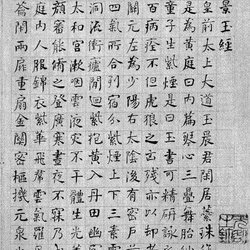 景玉經
皇前太上大道玉晨君閒居蘂珠
是為黃庭曰內篇琴心三疊舞胎仙
童子生紫煙是曰玉書可精研詠
百病痊不但虎狼之凶殘亦以却老
關元左為少陽右太陰後有密戶前
四氣所合列宿分紫煙上下三素雲
洞流衝廬間迴紫抱黃入丹田幽
太和宮漱咽靈液灾不干體生光華
顏審能術之登廣寒晝夜不寐乃
庭內人服錦衣紫華飛裙雲氣羅
籥閉兩扉重扇金關密樞機元泉